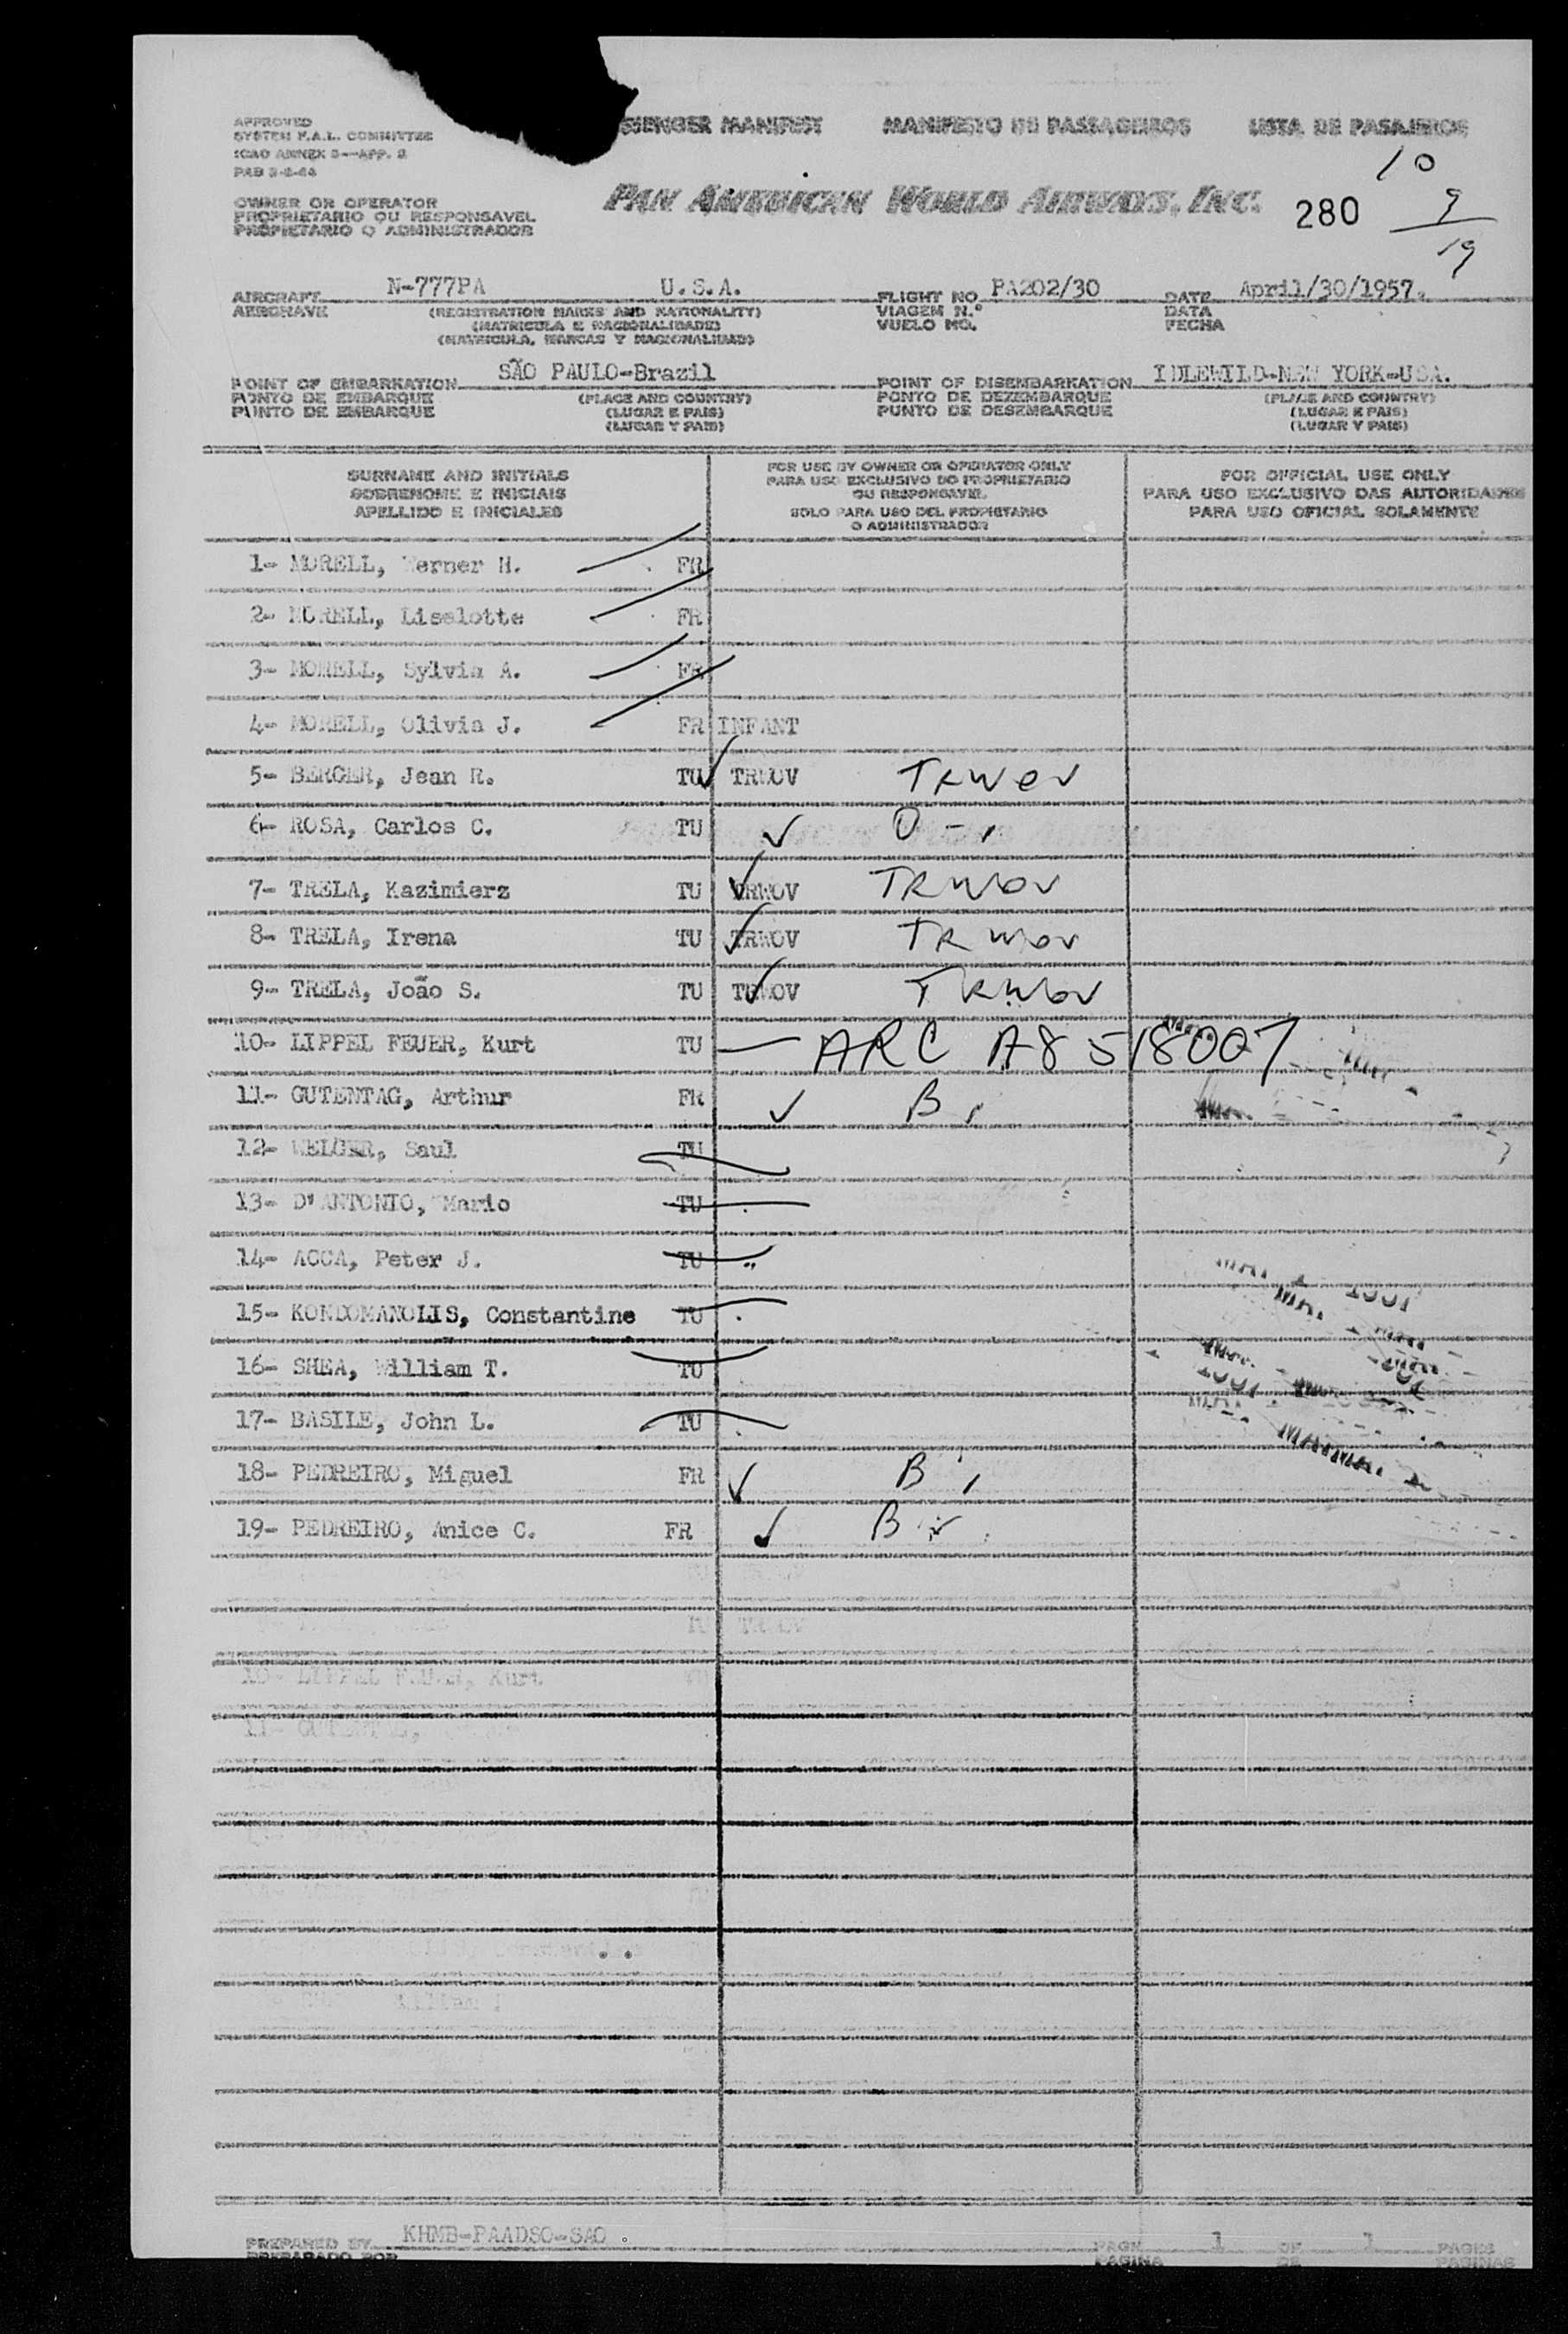 APPROVED
SYSTEM F.A.L. COMMITTEE
ICAO ANNEX 9—APP. 2
SSENGER MANIFEST MANIFESTO DE PASSAGEIROS LISTA DE PASAJEROS
10
9
19
OWNER OR OPERATOR
PROPRIETARIO OU RESPONSAVEL
PROPIETARIO O ADMINISTRADOR
PAN AMERICAN WORLD AIRWAYS, INC.
280
AIRCRAFT N-777PA U.S.A. FLIGHT NO PA202/30 DATE April/30/1957.
AERONAVE (REGISTRATION MARKS AND NATIONALITY) VIAGEM N.º DATA
(MATRICULA E NACIONALIDADE) VUELO NO. FECHA
(MATRICULA, MARCAS Y NACIONALIDAD)
POINT OF EMBARKATION SÃO PAULO-Brazil POINT OF DISEMBARKATION IDLEWILD-NEW YORK-USA.
PONTO DE EMBARQUE (PLACE AND COUNTRY) PONTO DE DEZEMBARQUE (PLACE AND COUNTRY)
PUNTO DE EMBARQUE (LUGAR E PAIS) PUNTO DE DESEMBARQUE (LUGAR E PAIS)
(LUGAR Y PAIS) (LUGAR Y PAIS)
SURNAME AND INITIALS
SOBRENOME E INICIAIS
APELLIDO E INICIALES
FOR USE BY OWNER OR OPERATOR ONLY
PARA USO EXCLUSIVO DO PROPRIETARIO
OU RESPONSAVEL
SOLO PARA USO DEL PROPIETARIO
O ADMINISTRADOR
FOR OFFICIAL USE ONLY
PARA USO EXCLUSIVO DAS AUTORIDADES
PARA USO OFICIAL SOLAMENTE
1- MORELL, Werner H. FR
2- MORELL, Liselotte FR
3- MORELL, Sylvia A. FR
4- MORELL, Olivia J. FR INFANT
5- BERGER, Jean R. TU TRWOV TRWOV
6- ROSA, Carlos C. TU
7- TRELA, Kazimierz TU TRWOV TRWOV
8- TRELA, Irena TU TRWOV TRWOV
9- TRELA, João S. TU TRWOV TRWOV
10- LIPPEL FEUER, Kurt TU ARC A8 518007
11- GUTENTAG, Arthur FR B
12- WELGER, Saul TU
13- D'ANTONIO, Mario TU
14- ACCA, Peter J. TU
15- KONDOMANOLIS, Constantine TU
16- SHEA, William T. TU
17- BASILE, John L. TU
18- PEDREIRO, Miguel FR B
19- PEDREIRO, Anice C. FR B
PREPARED BY KHMB-PAADSO-SAO PAGE 1 OF 1 PAGES
PREPARADO POR PAGINA DE PAGINAS